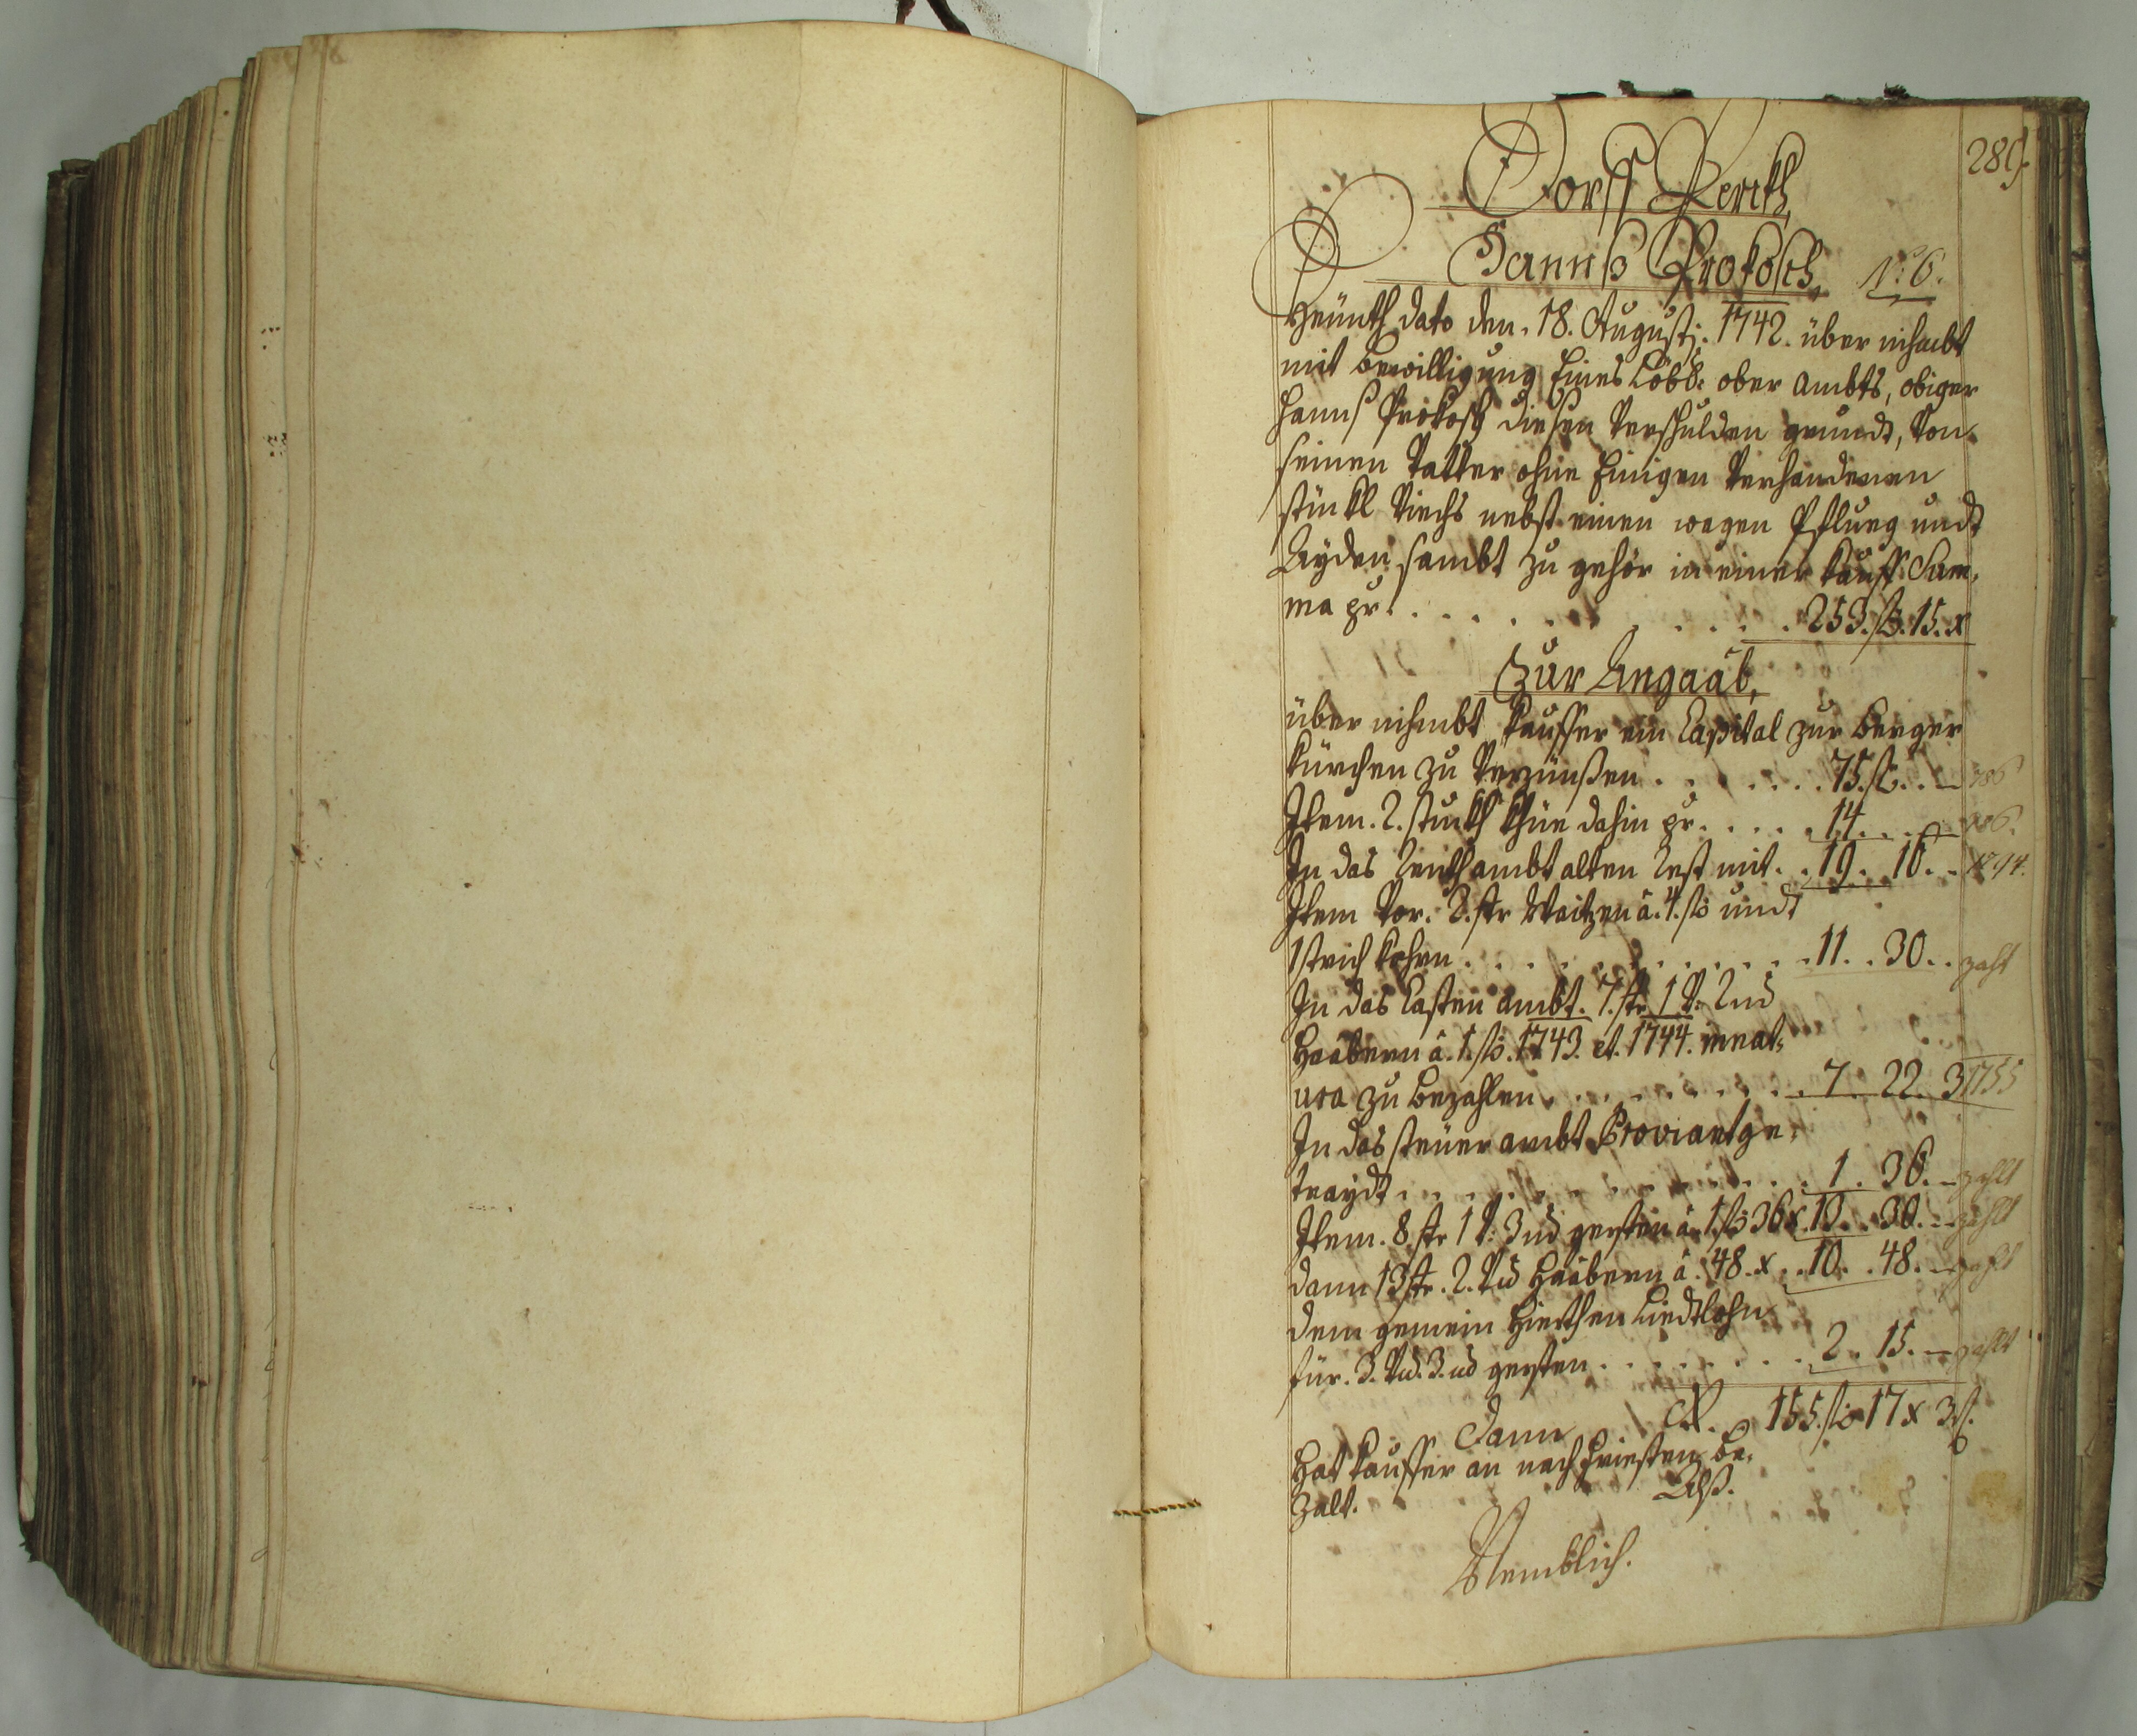 289.
Dorff Perith,
Hannß Prokosch, No: 6.
Heünth dato den. 18. Augusti: 1742. über nihmbt
mit bewilligung Eines Löbl: ober Ambts, obiger
Hannß Prokosch diesen Verschulden grundt, Von
seinen Vatter ohne Einigen Verhandenen
stükl Viechs nebst einen wagen Pflueg undt
Ayden sambt zu gehör in einer Kauff Sum,
ma pr: 253. ß. 15. x
Zur Angaab,
über nihmbt Kauffer ein Capital zur Berger
Kürchen zu Verzünßen 75. ß. — 786
Item. 2. stukh Khüe dahin pr. 14. — 786.
In das Renth ambt alten Rest mit. 19. 16. 1794.
Item Vor. 2. str Waitzen â. 4. ß undt
1 strich Kohrn 11. 30. zahlt
In das Casten ambt. 7. str 1 V: 2 md
Haabern â. 1. ß. 1743. et. 1744. in nat,
ura zu bezahlen 7. 22. 3 1755
In das steüer ambt Proviant ge,
traydt 1. 36. — zahlt
Item. 8 str 1 V: 3 md gersten â. 1 ß 36 x. 13. 30. — zahlt
dann 13 str. 2. V md Haabern â. 48. x. 10. 48. — zahlt
dem gemein Hierthen Liedtlohn
für. 3. V md. 3. md gersten 2. 15. — zahlt
155. ß 17 x 3 d.
Dann
Hat Kauffer an nach fristen be,
zalt. Alß.
Nemblich.